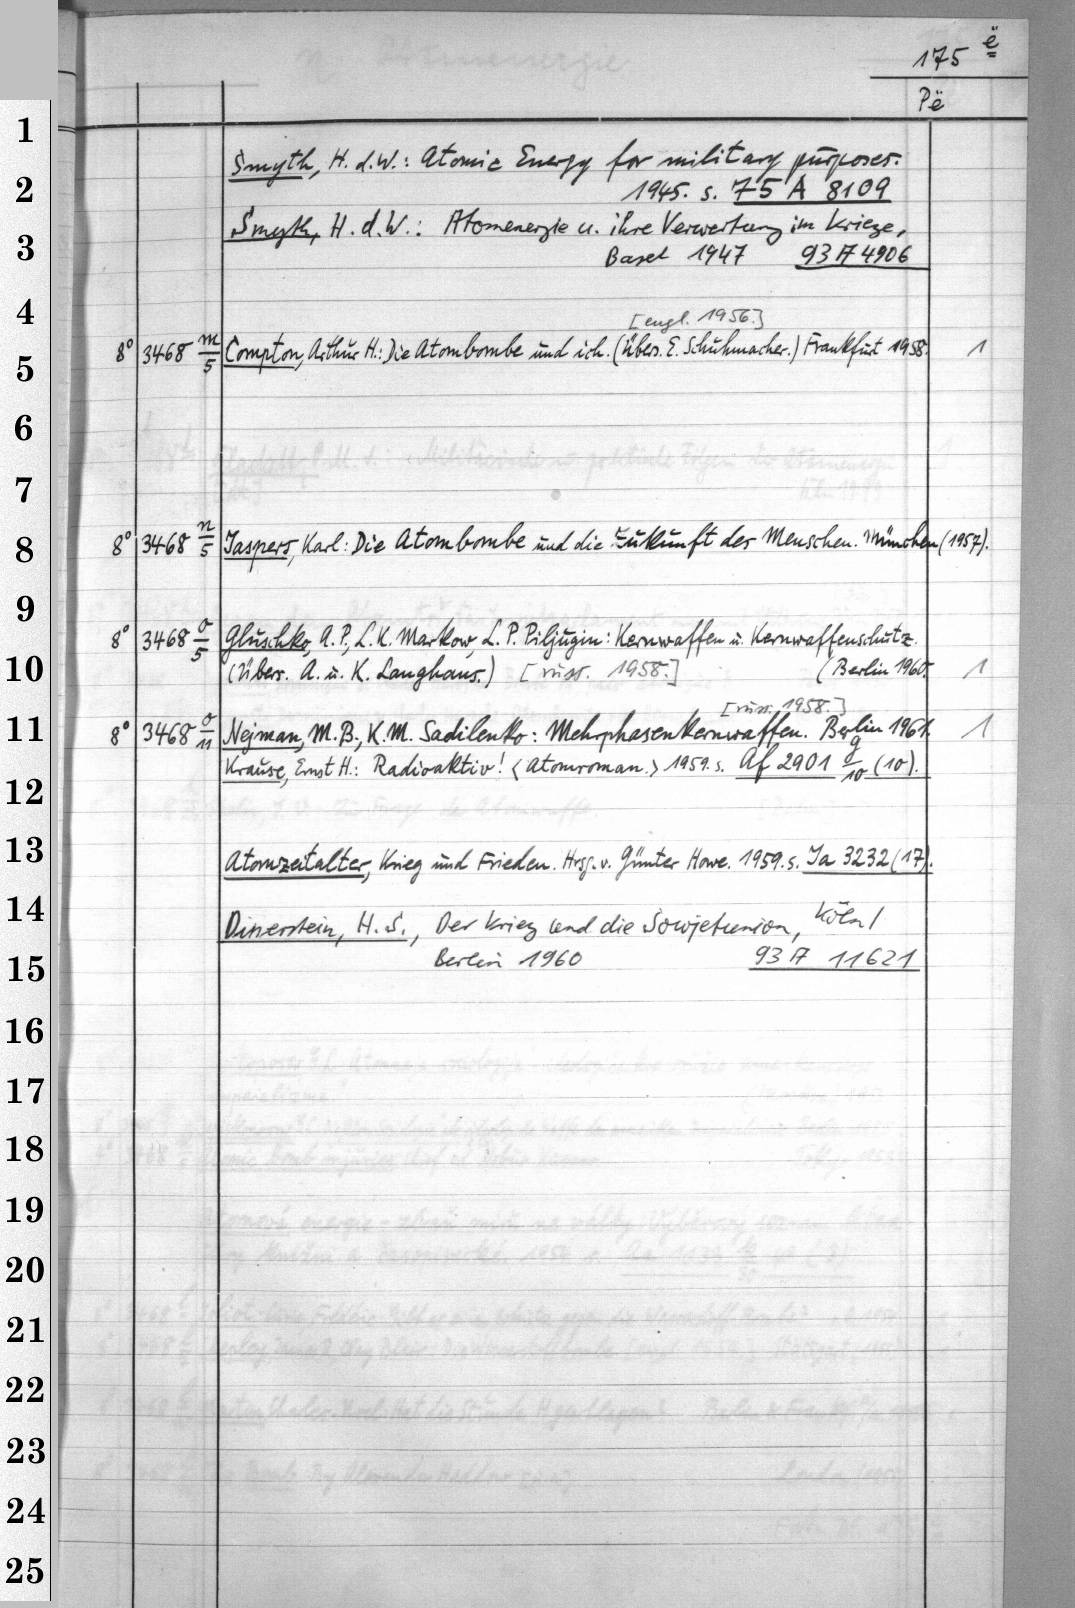 175 ë
Pë
1
Smyth, H. d. W.: Atomic Energy for military purposes.
2
1945. s. 75 A 8109
Smyth, H. d. W.: Atomenergie u. ihre Verwertung im Kriege,
3
Basel 1947 93 A 4906
4
[engl. 1956.]
8° 3468 m/5 Compton, Arthur H.: Die Atombombe und ich. (Übers. E. Schuhmacher.) Frankfurt 1958. 1
5
6
7
8° 3468 n/5 Jaspers, Karl: Die Atombombe und die Zukunft des Menschen. München (1957).
8
9
8° 3468 o/5 Gluschko, A. P., L. K. Markow, L. P. Piljugin: Kernwaffen u. Kernwaffenschutz.
10
(Übers. A. u. K. Langhans.) [russ. 1958.] (Berlin 1960. 1
[russ. 1958.]
11
8° 3468 o/11 Nejman, M. B., K. M. Sadilenko: Mehrphasenkernwaffen. Berlin 1961. 1
Krause, Ernst H.: Radioaktiv! <Atomroman.> 1959. s. Af 2901 g/10 (10).
12
13
Atomzeitalter, Krieg und Frieden. Hrsg. v. Günter Howe. 1959. s. Ja 3232 (17).
14
Dinerstein, H. S., Der Krieg und die Sowjetunion, Köln/
15
Berlin 1960 93 A 11621
16
17
18
19
20
21
22
23
24
25